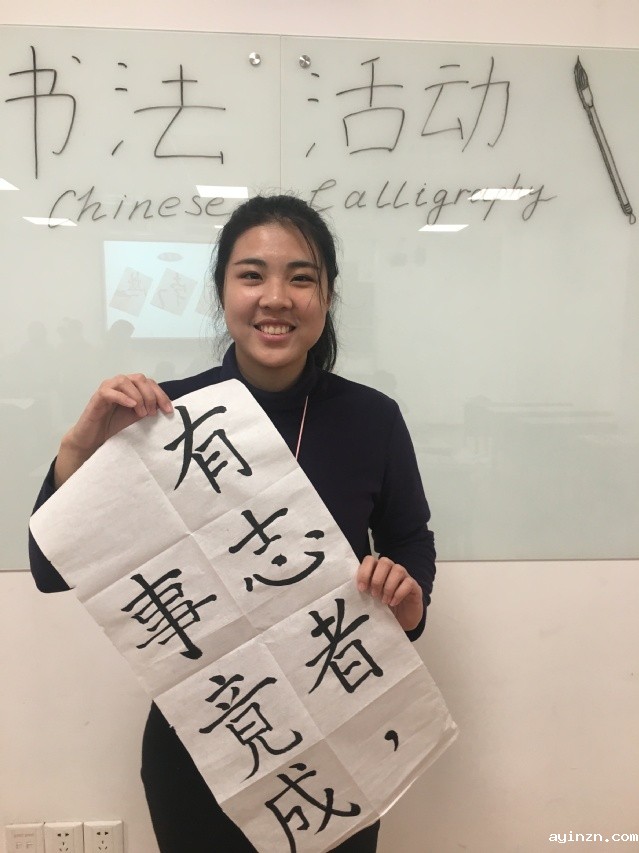 书法 活动
Chinese Calligraphy
有志者，
事竟成
ayinzn.com